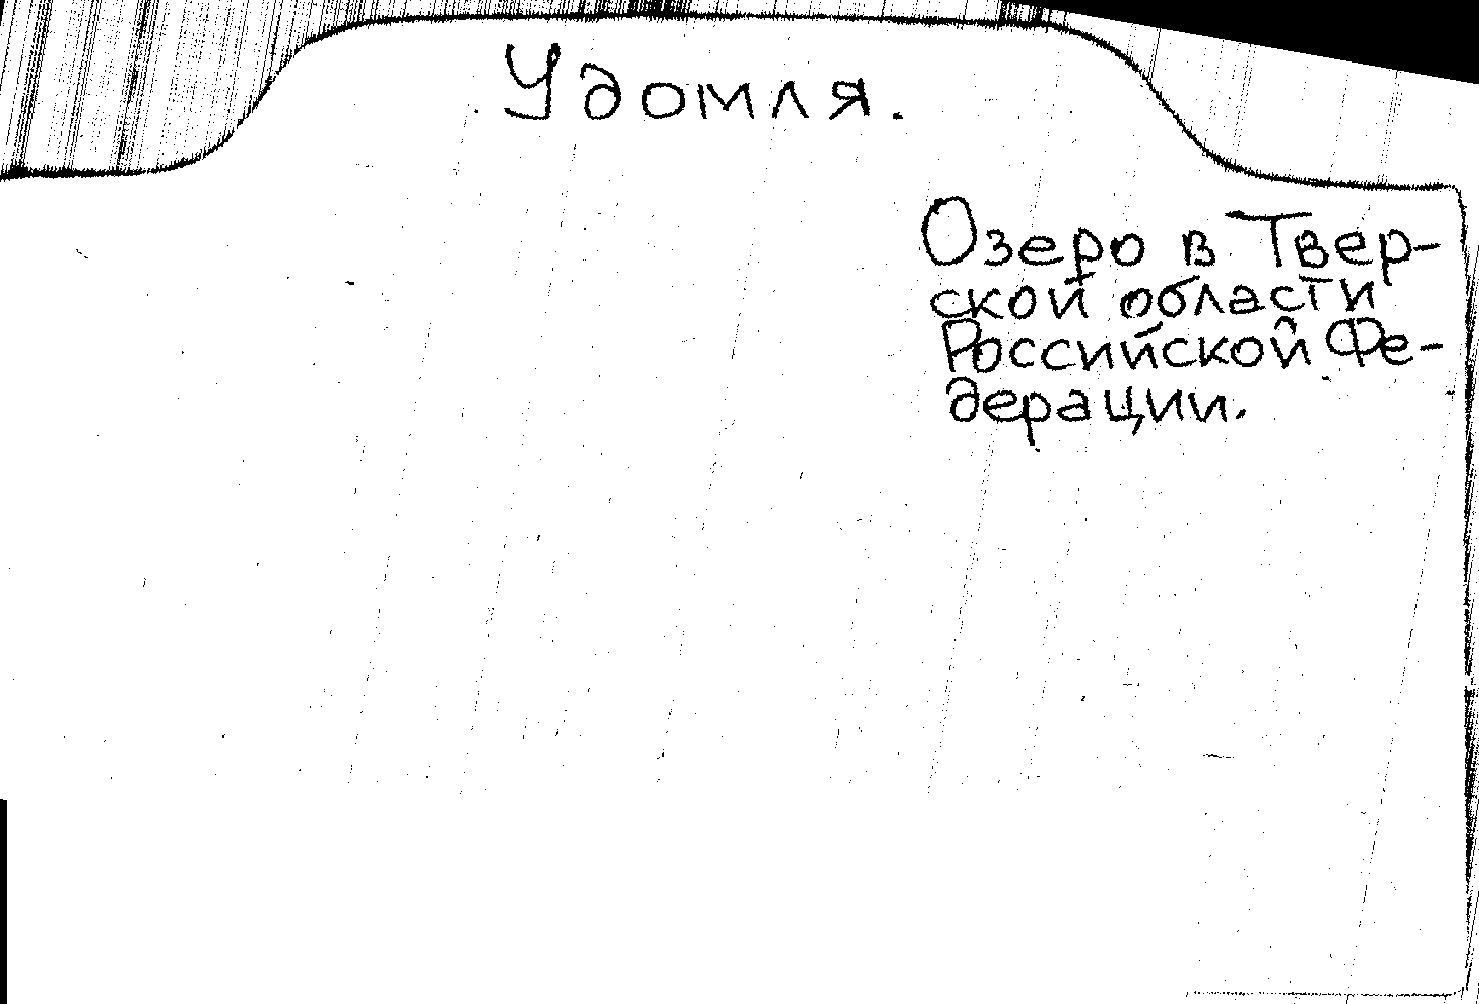 Удомля.
Озеро в Твер-
ской области
Российской Фе-
дерации.